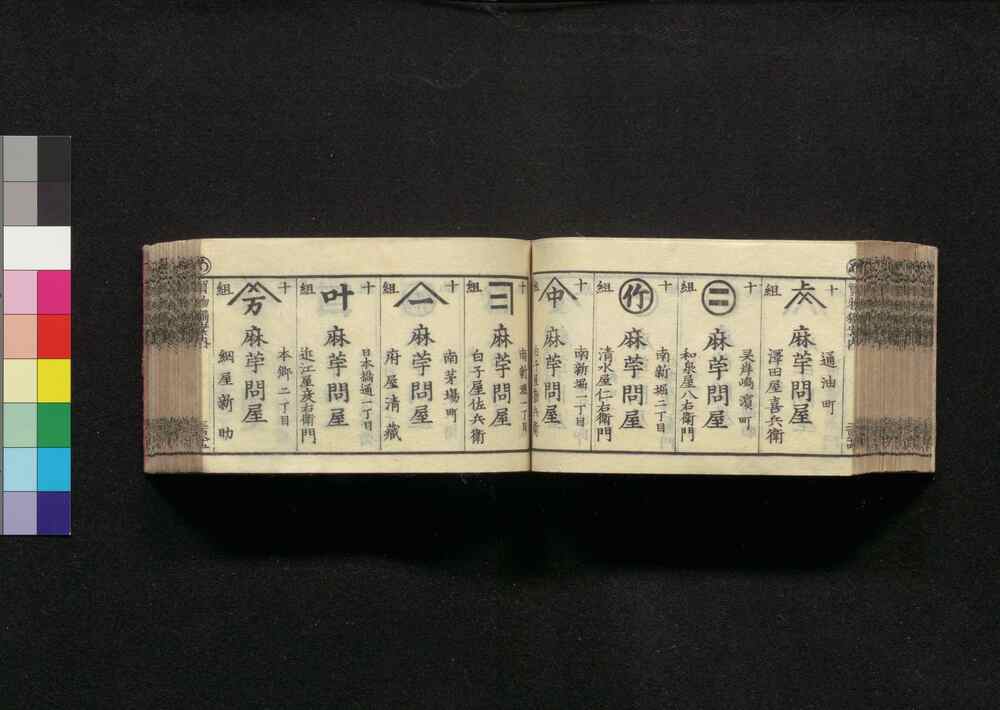 十組
通油町
麻苧問屋
澤田屋喜兵衛
十組
㊁
霊岸嶋濱町
麻苧問屋
和泉屋八右衛門
十組
竹
南新堀二丁目
麻苧問屋
清水屋仁右衛門
十組
中
南新堀一丁目
麻苧問屋
十組
南新堀一丁目
麻苧問屋
白子屋佐兵衛
十組
一
南茅場町
麻苧問屋
府屋清藏
十組
叶
日本橋通一丁目
麻苧問屋
近江屋彦右衛門
十組
本郷二丁目
麻苧問屋
綱屋新助